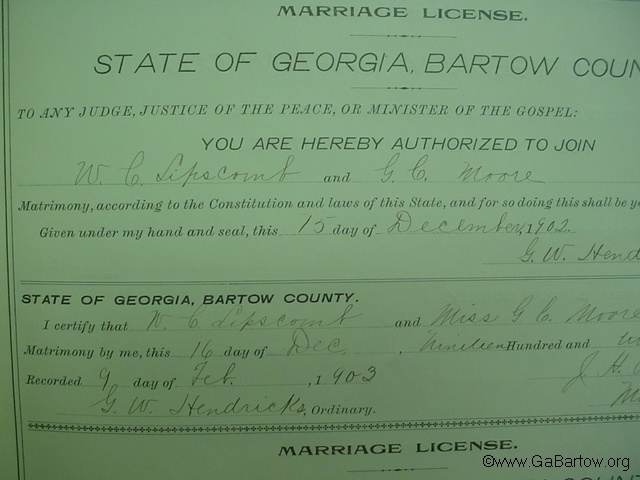 MARRIAGE LICENSE.
STATE OF GEORGIA, BARTOW COUN
TO ANY JUDGE, JUSTICE OF THE PEACE, OR MINISTER OF THE GOSPEL:
YOU ARE HEREBY AUTHORIZED TO JOIN
W. C. Lipscomb and G. C. Moore
Matrimony, according to the Constitution and laws of this State, and for so doing this shall be yo
Given under my hand and seal, this 15 day of December, 1902.
G. W. Hend
STATE OF GEORGIA, BARTOW COUNTY.
I certify that W. C. Lipscomb and Miss G C. Moore
Matrimony by me, this 16 day of Dec. , nineteen Hundred and
Recorded 9 day of Feb. , 1903 J. H.
G. W. Hendricks, Ordinary.
MARRIAGE LICENSE.
©www.GaBartow.org